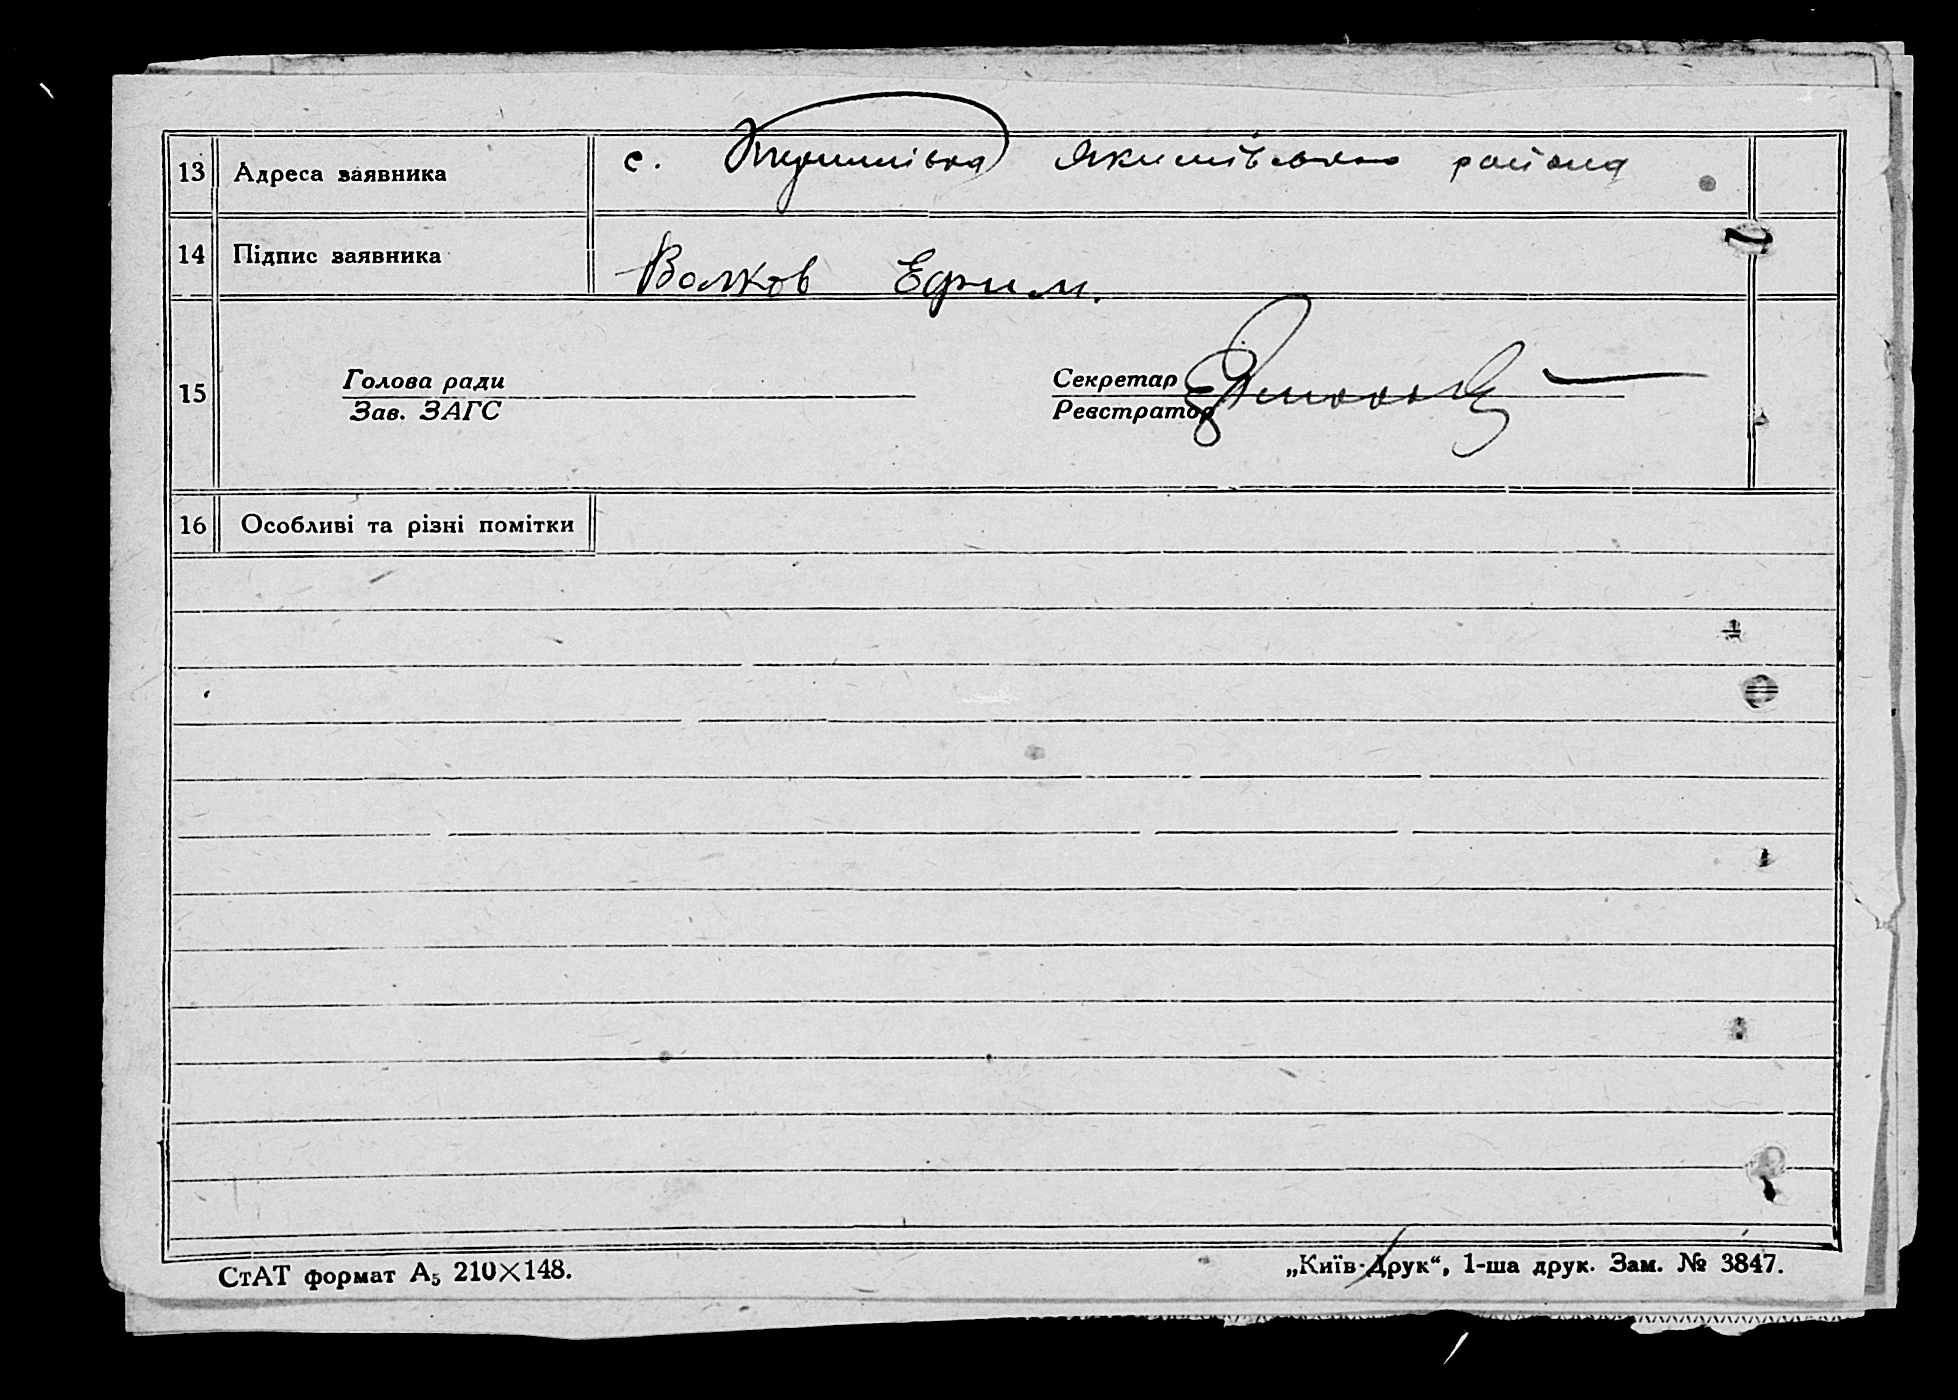 13 Адреса заявника с. Якимівського района
14 Підпис заявника Волков Ефим.
15
Голова ради Секретар
Зав. ЗАГС Реєстратор
16 Особливі та різні помітки
СтАТ формат А₅ 210×148. „Київ-Друк“, 1-ша друк. Зам. № 3847.